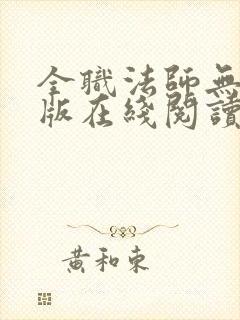 全職法師無
版在綫閱讀
黃和東